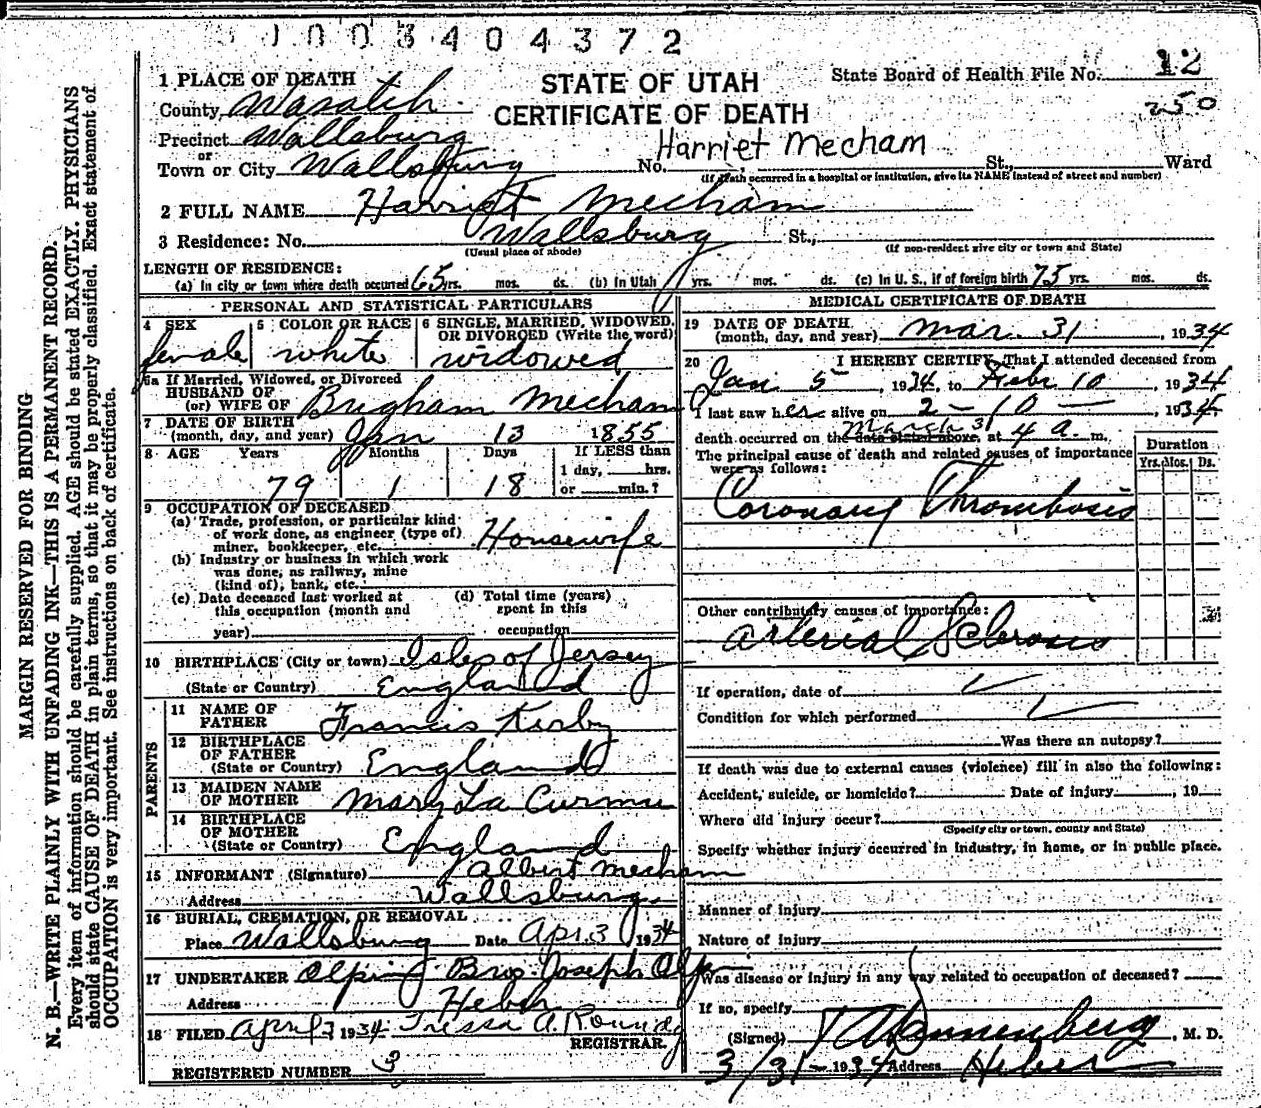 1003404372
STATE OF UTAH
CERTIFICATE OF DEATH
State Board of Health File No. 12
250
1 PLACE OF DEATH
County Wasatch
Precinct Wallsburg
or
Town or City Wallsburg No. Harriet Mecham St., Ward
(If death occurred in a hospital or institution, give its NAME instead of street and number)
2 FULL NAME Harriet Mecham
3 Residence: No. Wallsburg St.,
(Usual place of abode) (If non-resident give city or town and State)
LENGTH OF RESIDENCE:
(a) In city or town where death occurred 65 yrs. mos. ds. (b) In Utah yrs. mos. ds. (c) In U. S., if of foreign birth 75 yrs. mos. ds.
PERSONAL AND STATISTICAL PARTICULARS
4 SEX
female
5 COLOR OR RACE
white
6 SINGLE, MARRIED, WIDOWED, OR DIVORCED (Write the word)
widowed
6a If Married, Widowed, or Divorced
HUSBAND OF
(or) WIFE OF Brigham Mecham
7 DATE OF BIRTH
(month, day, and year) Jan 13 1855
8 AGE Years Months Days If LESS than
1 day, hrs.
79 1 18 or min.?
9 OCCUPATION OF DECEASED
(a) Trade, profession, or particular kind
of work done, as engineer (type of)
miner, bookkeeper, etc. Housewife
(b) Industry or business in which work
was done, as railway, mine
(kind of), bank, etc.
(c) Date deceased last worked at
this occupation (month and
year)
(d) Total time (years)
spent in this
occupation
10 BIRTHPLACE (City or town) Isles of Jersey
(State or Country) England
PARENTS
11 NAME OF
FATHER Francis Kirby
12 BIRTHPLACE
OF FATHER
(State or Country) England
13 MAIDEN NAME
OF MOTHER Mary La
14 BIRTHPLACE
OF MOTHER
(State or Country) England
15 INFORMANT (Signature) Albert Mecham
Address Wallsburg
16 BURIAL, CREMATION, OR REMOVAL
Place Wallsburg Date Apr. 3 1934
17 UNDERTAKER Olpin Bros Joseph Olpin
Address Heber
18 FILED April 1934 Tressa A. Roundy
REGISTRAR.
REGISTERED NUMBER 3
MEDICAL CERTIFICATE OF DEATH
19 DATE OF DEATH
(month, day, and year) Mar. 31 1934
20 I HEREBY CERTIFY, That I attended deceased from
Jan 5, 1934, to Febr 10, 1934
I last saw her alive on 2-10-, 1934
March 31
death occurred on the date stated above, at 4 a. m.
The principal cause of death and related causes of importance
were as follows:
Duration
Yrs. Mos. Ds.
Coronary Thrombosis
Other contributary causes of importance:
Arterial Sclerosis
If operation, date of
Condition for which performed
Was there an autopsy?
If death was due to external causes (violence) fill in also the following:
Accident, suicide, or homicide? Date of injury , 19
Where did injury occur?
(Specify city or town, county and State)
Specify whether injury occurred in industry, in home, or in public place.
Manner of injury
Nature of injury
Was disease or injury in any way related to occupation of deceased?
If so, specify
(Signed) Dannenberg, M. D.
3/31- 1934 Address Heber
MARGIN RESERVED FOR BINDING
N. B.—WRITE PLAINLY WITH UNFADING INK—THIS IS A PERMANENT RECORD.
Every item of information should be carefully supplied. AGE should be stated EXACTLY. PHYSICIANS
should state CAUSE OF DEATH in plain terms, so that it may be properly classified. Exact statement of
OCCUPATION is very important. See instructions on back of certificate.